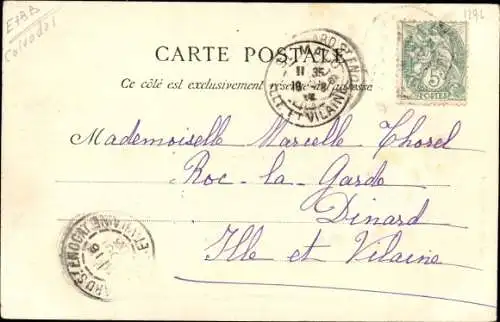 E7BB
Calvados
1296
CARTE POSTALE
Ce côté est exclusivement réservé à l'adresse
5c
POSTES
11 35
ILLE ET VILAINE
Mademoiselle Marcelle Thorel
Roc-la-Garde
Dinard
Ille et Vilaine